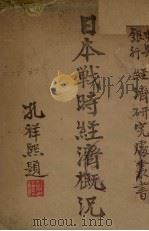 中央
銀行 經濟研究處叢書
日本戰時經濟概況
孔祥熙題